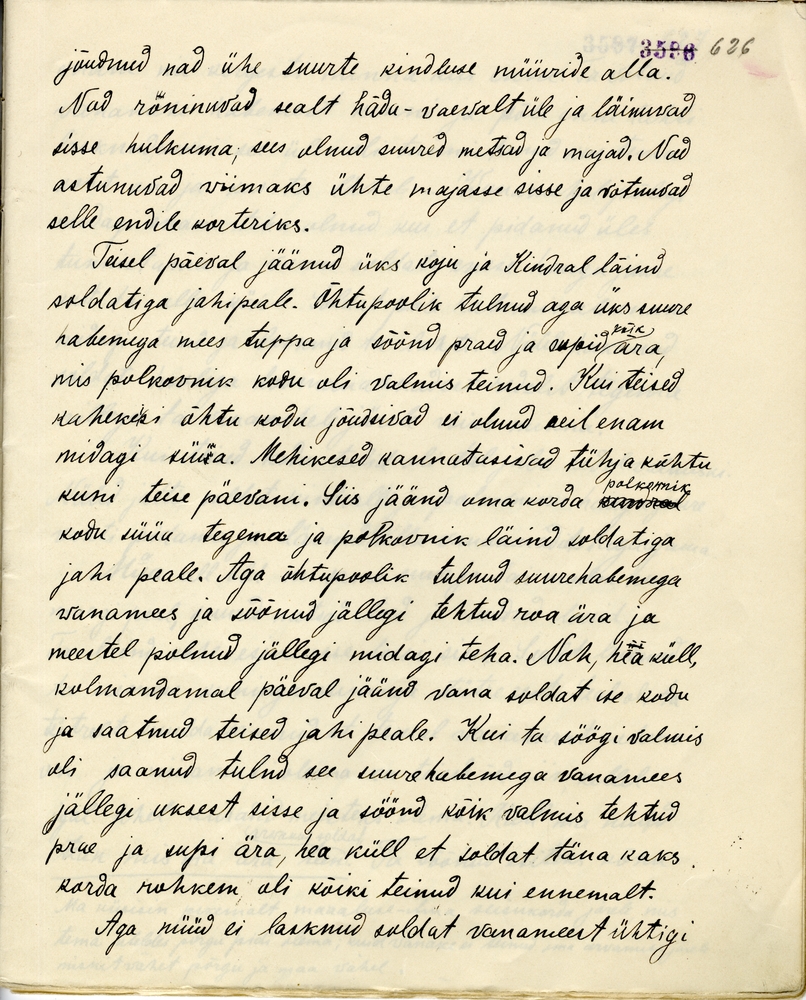 3596 626
jõudnud nad ühe suurte kindluse müüride alla.
Nad röninuvad sealt hädu-vaevalt üle ja läinuvad
sisse hulkuma, sees olnud suured metsad ja majad. Nad
astunuvad viimaks ühte majasse sisse ja võtnuvad
selle endile korteriks.
Teisel päeval jäänud üks koju ja Kindral läind
soldatiga jahipeale. Õhtupoolik tulnud aga üks suure
habemega mees tuppa ja söönd praed ja supid kõik ära,
mis polkovnik kodu oli valmis teinud. Kui teised
kahekesi õhtu kodu jõudsivad ei olnud neil enam
midagi süüa. Mehikesed kannatasivad tühja kõhtu
kuni teise päevani. Siis jäänd oma korda kindral polkovnik
kodu süüa tegema ja polkovnik läind soldatiga
jahi peale. Aga õhtupoolik tulnud suurehabemega
vanamees ja söönud jällegi tehtud roa ära ja
meestel polnud jällegi midagi teha. Noh, hää küll,
kolmandamal päeval jäänd vana soldat ise kodu
ja saatnud teised jahipeale. Kui ta söögi valmis
oli saanud tulnd see suurehabemega vanamees
jällegi uksest sisse ja söönd kõik valmis tehtud
prae ja supi ära, hea küll et soldat täna kaks
korda rohkem oli kõiki teinud kui ennemalt.
Aga nüüd ei lasknud soldat vanameest ühtigi